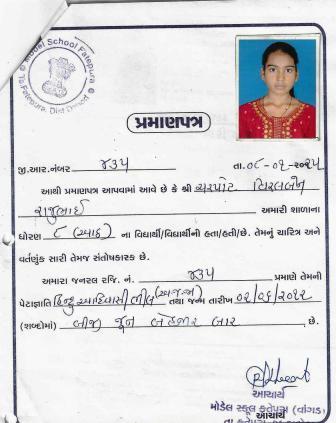 Model School Fatepura
Ta.Fatepura, Dist.Dahod
પ્રમાણપત્ર
જી.આર.નંબર ૪૩૫ તા.૦૮-૦૧-૨૦૨૫
આથી પ્રમાણપત્ર આપવામાં આવે છે કે શ્રી ચરપોટ
રાજુભાઈ અમારી શાળાના
ધોરણ ૮ (આઠ) ના વિદ્યાર્થી/વિદ્યાર્થીની હતા/હતી/છે. તેમનું ચારિત્ર અને
વર્તણુંક સારી તેમજ સંતોષકારક છે.
અમારા જનરલ રજિ. નં. ૪૩૫ પ્રમાણે તેમની
પેટાજ્ઞાતિ હિન્દુ આદિવાસી ભીલ (અ.જ.જા) તથા જન્મ તારીખ ૦૨/૦૬/૨૦૧૨
(શબ્દોમાં) બીજી જૂન બે હજાર બાર છે.
આચાર્ય
મોડેલ સ્કૂલ ફતેપુરા (વાંગડ)